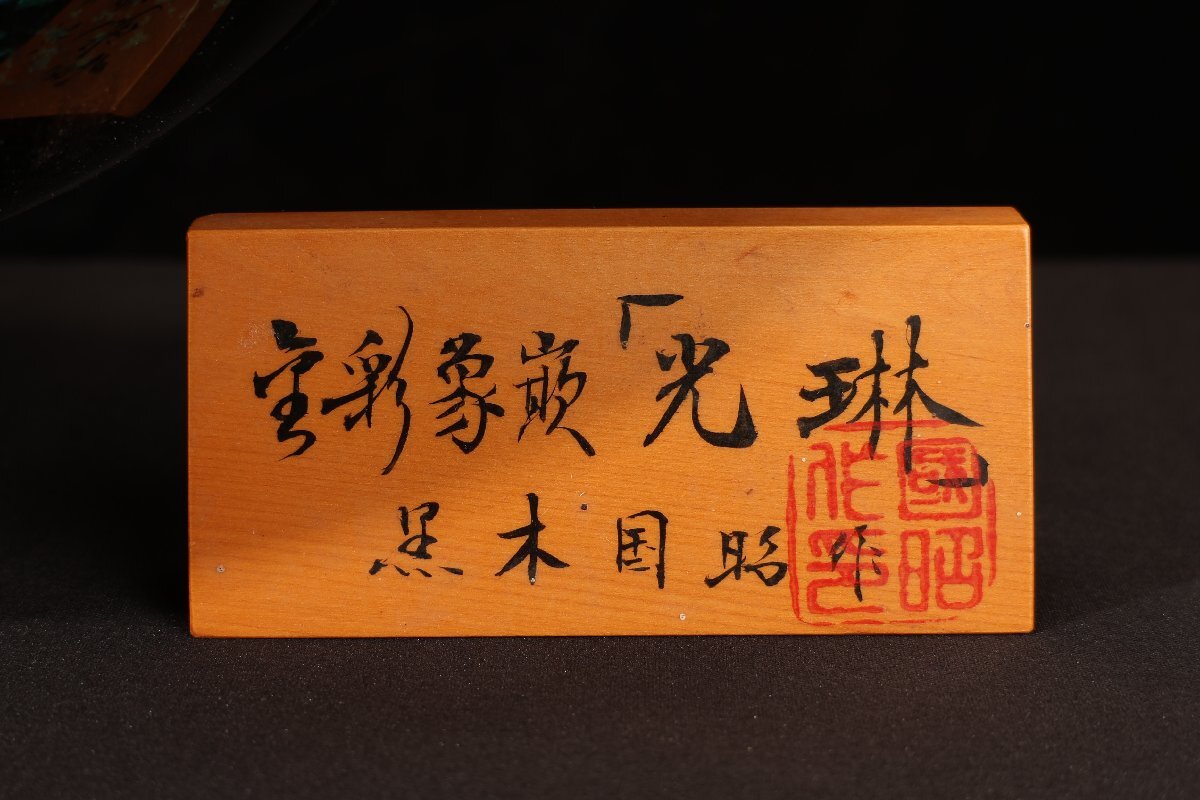 金彩象嵌「光琳」
黒木国昭作
國昭作印